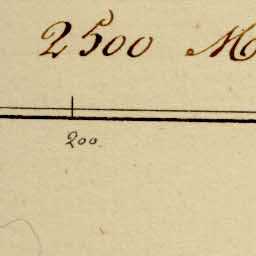 2500 M
200